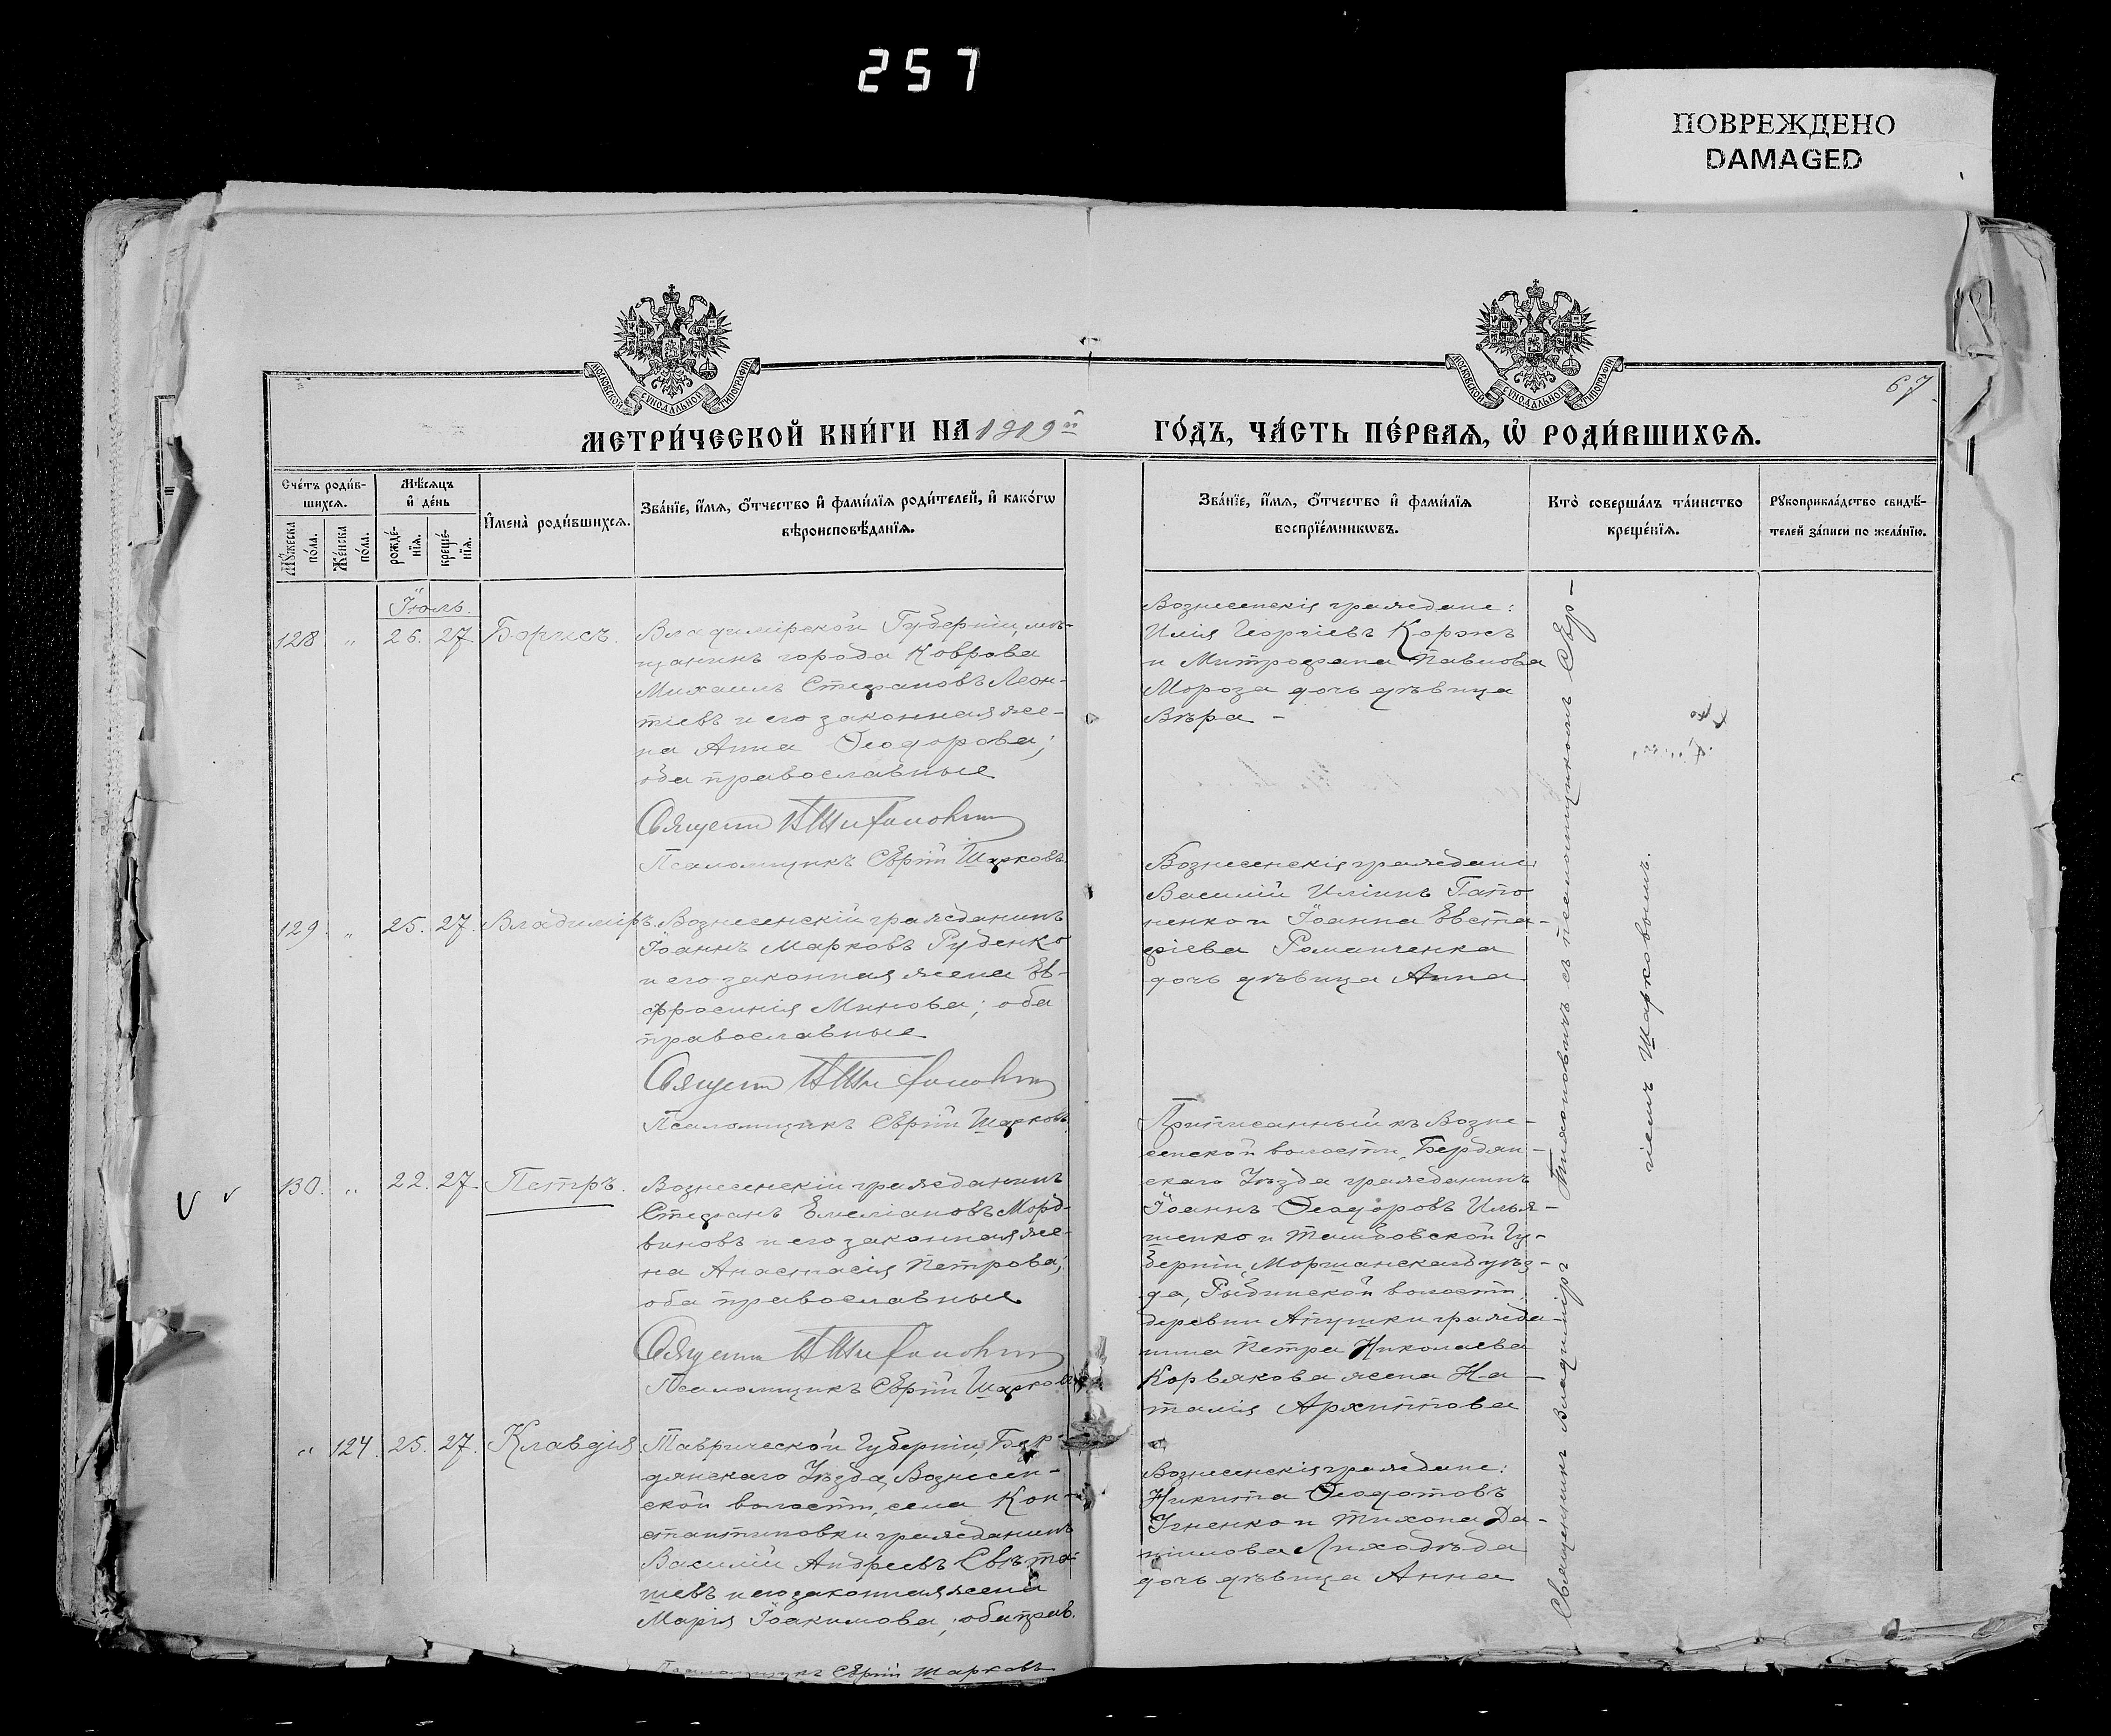 257
ПОВРЕЖДЕНО
DAMAGED
МОСКОВСКОЙ СѴНОДАЛЬНОЙ ТИПОГРАФІИ
МОСКОВСКОЙ СѴНОДАЛЬНОЙ ТИПОГРАФІИ
67
МЕТРИ́ЧЕСКОЙ КНИ́ГИ НА 1919й ГО́ДЪ, ЧА́СТЬ ПЕ́РВАЯ, Ѡ҆ РОДИ́ВШИХСЯ.
Сче́тъ роди́в-
шихся.
Мꙋжеска по́ла.
Же́нска по́ла.
Мѣ́сяцъ
и҆ де́нь
рожде́-
нїѧ.
креще́-
нїѧ.
И҆мена̀ роди́вшихся.
Зва́нїе, и҆́мѧ, ѻ҆́тчество и҆ фами́лїѧ роди́телей, и҆ како́гѡ
вѣроисповѣ́данїѧ.
Зва́нїе, и҆́мѧ, ѻ҆́тчество и҆ фами́лїѧ
воспрїе́мникѡвъ.
Кто̀ соверша́лъ та́инство
креще́нїѧ.
Рꙋкоприкла́дство свидѣ́-
телей за́писи по жела́нїю.
Іюль.
128 " 26. 27. Борисъ.
Владимірской Губерніи, мѣ-
щанинъ города Коврова
Михаилъ Стефановъ Леон-
тіевъ и его законная же-
на Анна Ѳеодорова;
оба православные
Священ
Псаломщикъ Сергій Шарковъ
Вознесенскіе граждане:
Илія Георгіевъ Коржъ
и Митрофана Павлова
Мороза дочь дѣвица
Вѣра -
129. " 25. 27. Владиміръ.
Вознесенскій гражданинъ
Іоаннъ Марковъ Руденко
и его законная жена Ев-
фросинія Минова; оба
православные
Священ
Псаломщикъ Сергій Шарковъ
Вознесенскіе граждане:
Василій Иліинъ Гапо
ненко и Іоанна Евста-
фіева Романченка
дочь дѣвица Анна
130. " 22. 27. Петръ.
Вознесенскій гражданинъ
Стефанъ ЕмеліановъМорд-
виновъ и его законная же-
на Анастасія Петрова;
оба православные
Священ
Псаломщикъ Сергій Шарковъ
Приписанный къ Возне-
сенской волости, Бердян-
скаго Уѣзда гражданинъ
Іоаннъ Ѳеодоровъ Илья-
шенко и Тамбовской Гу-
берніи, Моршанскаго уѣз-
да, волости,
деревни гражда-
нина Петра Николаева
Корвякова жена На-
талія Архиппова
" 124. 25. 27. Клавдія
Таврической Губерніи, Бер-
дянскаго Уѣзда, Вознесен-
ской волости, села Кон-
стантиновки гражданинъ
Василій Андреевъ
и его законная жена
Марія Іоакимова; оба прав.
Псаломщикъ Сергій Шарковъ
Вознесенскіе граждане:
Никита Ѳеодотовъ
и Тихона Да-
ниилова Лиходѣда
дочь дѣвица Анна
Священникъ Владиміръ съ псаломщикомъ Сер-
гіемъ Шарковымъ.